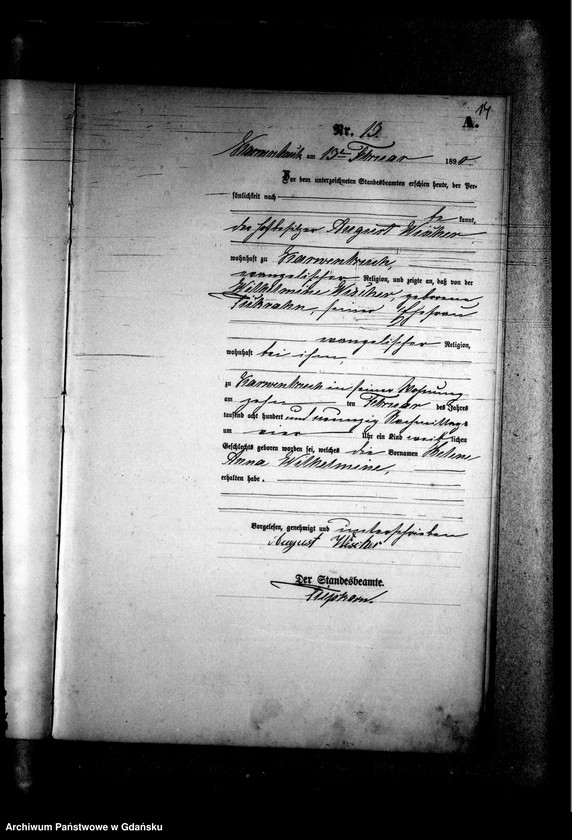 14
A.
Nr. 13.
Karwenbruch am 13ten Februar 1890.
Vor dem unterzeichneten Standesbeamten erschien heute, der Per-
sönlichkeit nach
be kannt,
der Hofbesitzer August
wohnhaft zu Karwenbruch,
evangelischer Religion, und zeigte an, daß von der
Wilhelmine geborene
seiner Ehefrau
evangelischer Religion,
wohnhaft bei ihm,
zu Karwenbruch in seiner Wohnung
am zehn ten Februar des Jahres
tausend acht hundert und neunzig Nachmittags
um vier Uhr ein Kind weib lichen
Geschlechts geboren worden sei, welches die Vornamen Helene
Anna Wilhelmine,
erhalten habe.
Vorgelesen, genehmigt und unterschrieben
August
Der Standesbeamte.
Archiwum Państwowe w Gdańsku